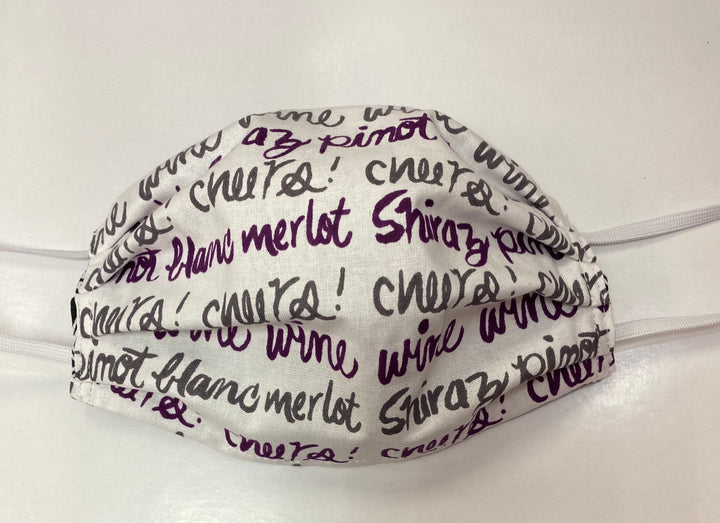 wine wine
wine az pinot
cheers! cheers!
not blanc merlot Shiraz pinot
cheers! cheers! cheers!
wine wine wine wine
pinot blanc merlot Shiraz pinot
cheers! cheers! cheers!